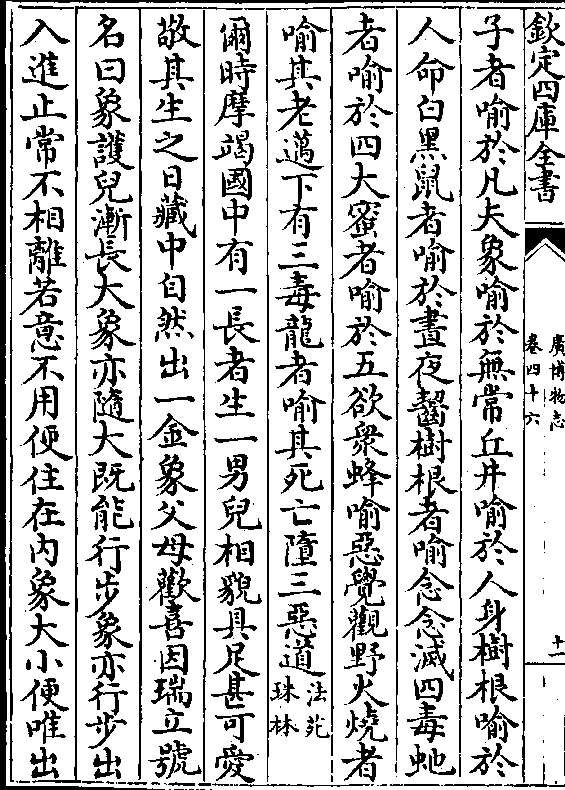 欽定四庫全書
廣博物志
卷四十六
十一
子者喻於凡夫象喻於無常丘井喻於人身樹根喻於
人命白黑鼠者喻於晝夜齧樹根者喻念念滅四毒虵
者喻於四大蜜者喻於五欲衆蜂喻惡覺觀野火燒者
喻其老邁下有三毒龍者喻其死亡墮三惡道法苑珠林
爾時摩竭國中有一長者生一男兒相貌具足甚可愛
敬其生之日藏中自然出一金象父母歡喜因瑞立號
名曰象護兒漸長大象亦隨大既能行步象亦行步出
入進止常不相離若意不用便住在內象大小便唯出